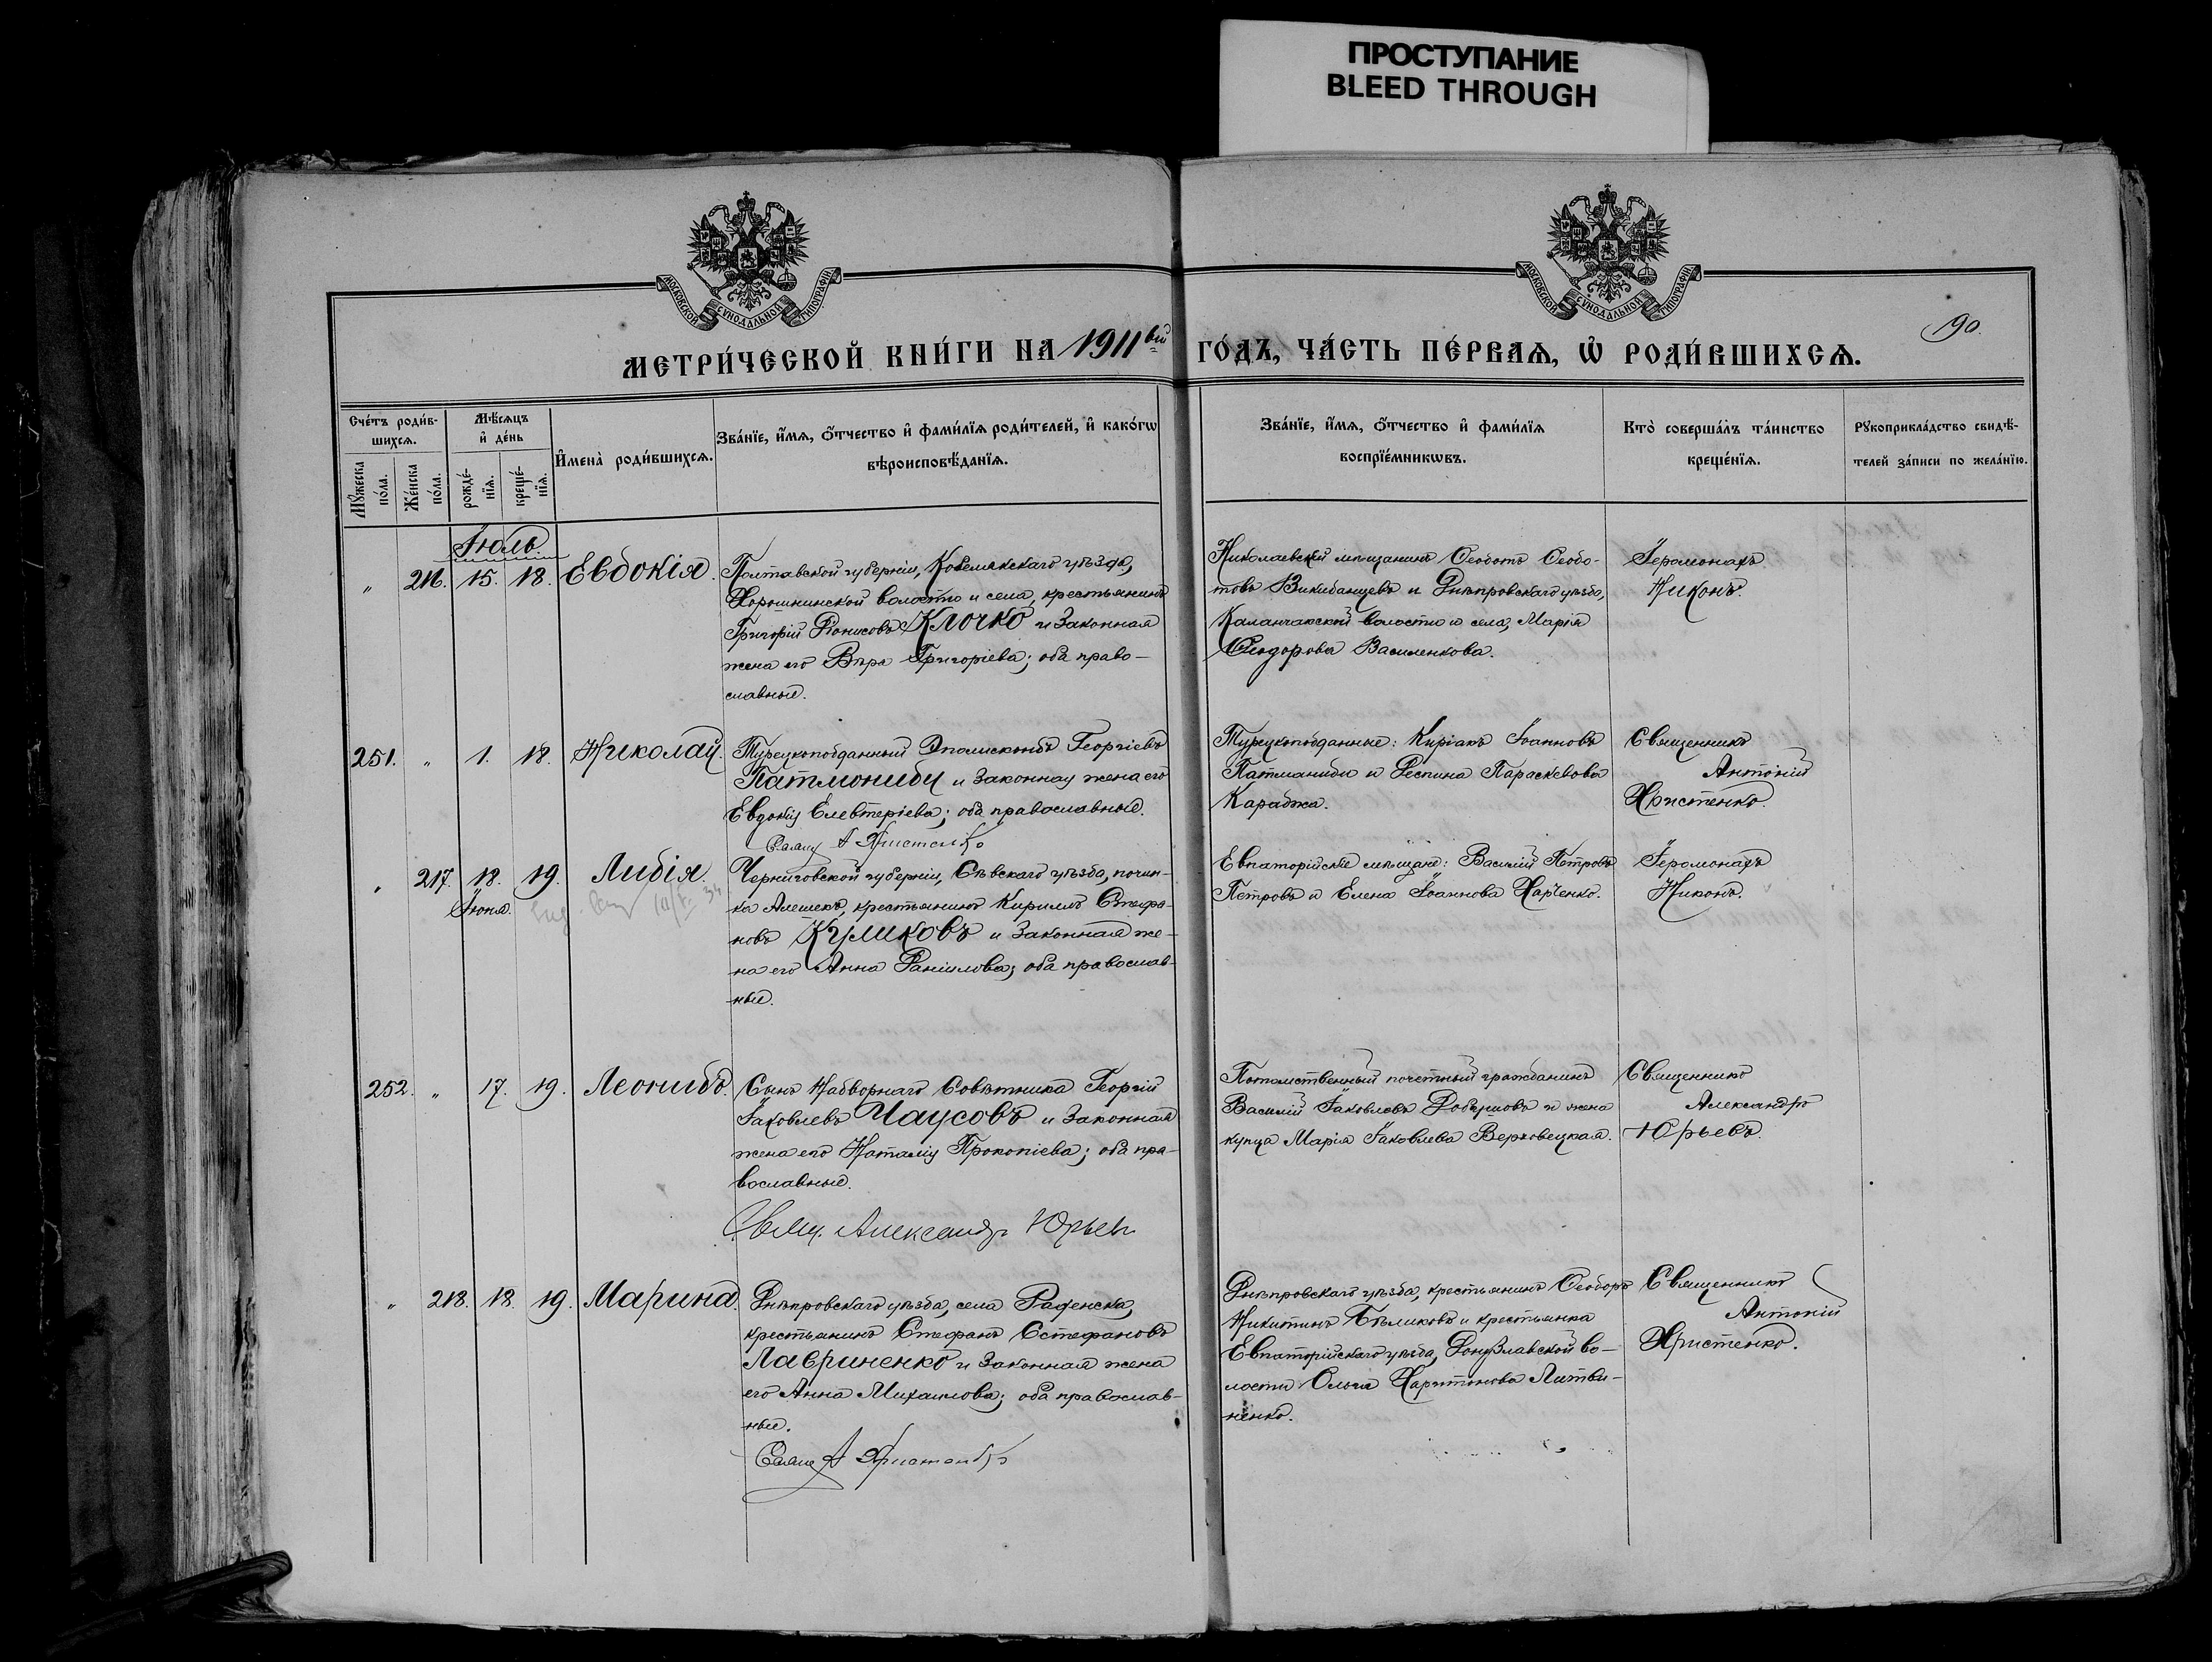 ПРОСТУПАНИЕ
BLEED THROUGH
МОСКОВСКОЙ СѴНОДАЛЬНОЙ ТИПОГРАФІИ
МОСКОВСКОЙ СѴНОДАЛЬНОЙ ТИПОГРАФІИ
190.
МЕТРИ́ЧЕСКОЙ КНИ́ГИ НА 1911вый ГО́ДЪ, ЧА́СТЬ ПЕ́РВАѦ, Ѡ҆ РОДИ́ВШИХСѦ.
Сче́тъ роди́в-
шихсѧ.
Мꙋ́жеска
по́ла.
Же́нска
по́ла.
Мѣ́сѧцъ
и҆ де́нь
рожде́-
нїѧ.
креще́-
нїѧ.
И҆мена̀ роди́вшихсѧ.
Зва́нїе, и҆́мѧ, ѻ҆́тчество и҆ фами́лїѧ роди́телей, и҆ како́гѡ
вѣроисповѣ́данїѧ.
Зва́нїе, и҆́мѧ, ѻ҆́тчество и҆ фами́лїѧ
воспрїе́мникѡвъ.
Кто̀ соверша́лъ та́инство
креще́нїѧ.
Рꙋкоприкла́дство свидѣ́-
телей за́писи по жела́нїю.
Іюль
„ 216. 15. 18. Евдокія.
Полтавской губерніи, Кобелякскаго уѣзда,
Хорошкинской волости и села, крестьянинъ
Григорій Діонисовъ Клочко и законная
жена его Вѣра Григоріева; оба право-
славные.
Николаевскій мѣщанинъ Ѳеодотъ Ѳеодо-
товъ Викибанцевъ и Днѣпровскаго уѣзда,
Каланчакской волости и села, Марія
Ѳеодорова Василенкова.
Іеромонахъ
Никонъ.
251. „ 1. 18. Николай.
Турецкоподданный Эпамскондъ Георгіевъ
Патмониди и законная жена его
Евдокія Елевтеріева; оба православные.
Свящ А Христенко
Турецкоподданные: Киріакъ Іоанновъ
Патманиди и Деспина Параскевова
Караджа.
Священникъ
Антоній
Христенко.
„ 217. 18. 19. Лидія.
Іюня.
Черниговской губерніи, Сѣвскаго уѣзда, почин-
ка Алешекъ, крестьянинъ Кириллъ Стефа-
новъ Куликовъ и законная же-
на его Анна Даніилова; оба православ-
ные.
Евпаторійскіе мѣщане: Василій Петровъ
Петровъ и Елена Іоаннова Харченко.
Іеромонахъ
Никонъ.
252. „ 17. 19. Леонидъ.
Сынъ Надворнаго Совѣтника Георгій
Іаковлевъ Чаусовъ и законная
жена его Наталія Прокопіева; оба пра-
вославные.
Свящ. Александръ Юрьевъ
Потомственный почетный гражданинъ
Василій Іаковлевъ Добышовъ и жена
купца Марія Іаковлева Верховецкая.
Священникъ
Александръ
Юрьевъ.
„ 218. 18. 19. Марина.
Днѣпровскаго уѣзда, села Раденска,
крестьянинъ Стефанъ Стефановъ
Лавриненко и законная жена
его Анна Михаилова; оба православ-
ные.
Свящ А Христенко
Днѣпровскаго уѣзда, крестьянинъ Ѳеодоръ
Никитинъ Бѣликовъ и крестьянка
Евпаторійскаго уѣзда, Донузлавской во-
лости Ольга Харитонова Литви-
ненко.
Священникъ
Антоній
Христенко.